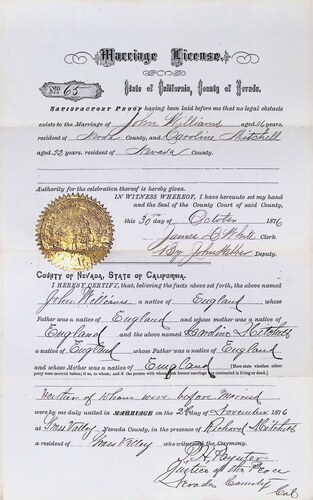 Marriage License.
No. 65
State of California, County of Nevada.
SATISFACTORY PROOF having been laid before me that no legal obstacle
exists to the Marriage of John Williams aged 26 years,
resident of Nevada County, and Caroline Mitchell
aged 22 years. resident of Nevada County.
Authority for the celebration thereof is hereby given.
IN WITNESS WHEREOF, I have hereunto set my hand
and the Seal of the County Court of said County,
this 30 day of October 1876
James D White Clerk
By John Webber Deputy.
COUNTY OF NEVADA, STATE OF CALIFORNIA.
I HEREBY CERTIFY, that, believing the facts above set forth, the above named
John Williams a native of England whose
Father was a native of England and whose mother was a native of
England and the above named Caroline Mitchell
a native of England whose Father was a native of England
and whose Mother was a native of England [Here state whether either
party were married before; if so, to whom; and if the person with whom the former marriage was contracted is living or dead.]
Neither of whom were before married
were by me duly united in MARRIAGE on the 2 day of November 1876
at Grass Valley Nevada County, in the presence of Richard Mitchell
a resident of Grass Valley who witnessed the Ceremony.
Poynter
Justice of the Peace
Nevada County Cal